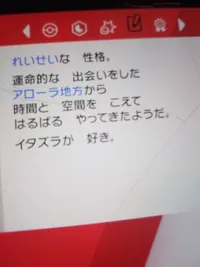 れいせいな 性格。
運命的な 出会いをした
アローラ地方から
時間と 空間を こえて
はるばる やってきたようだ。
イタズラが 好き。